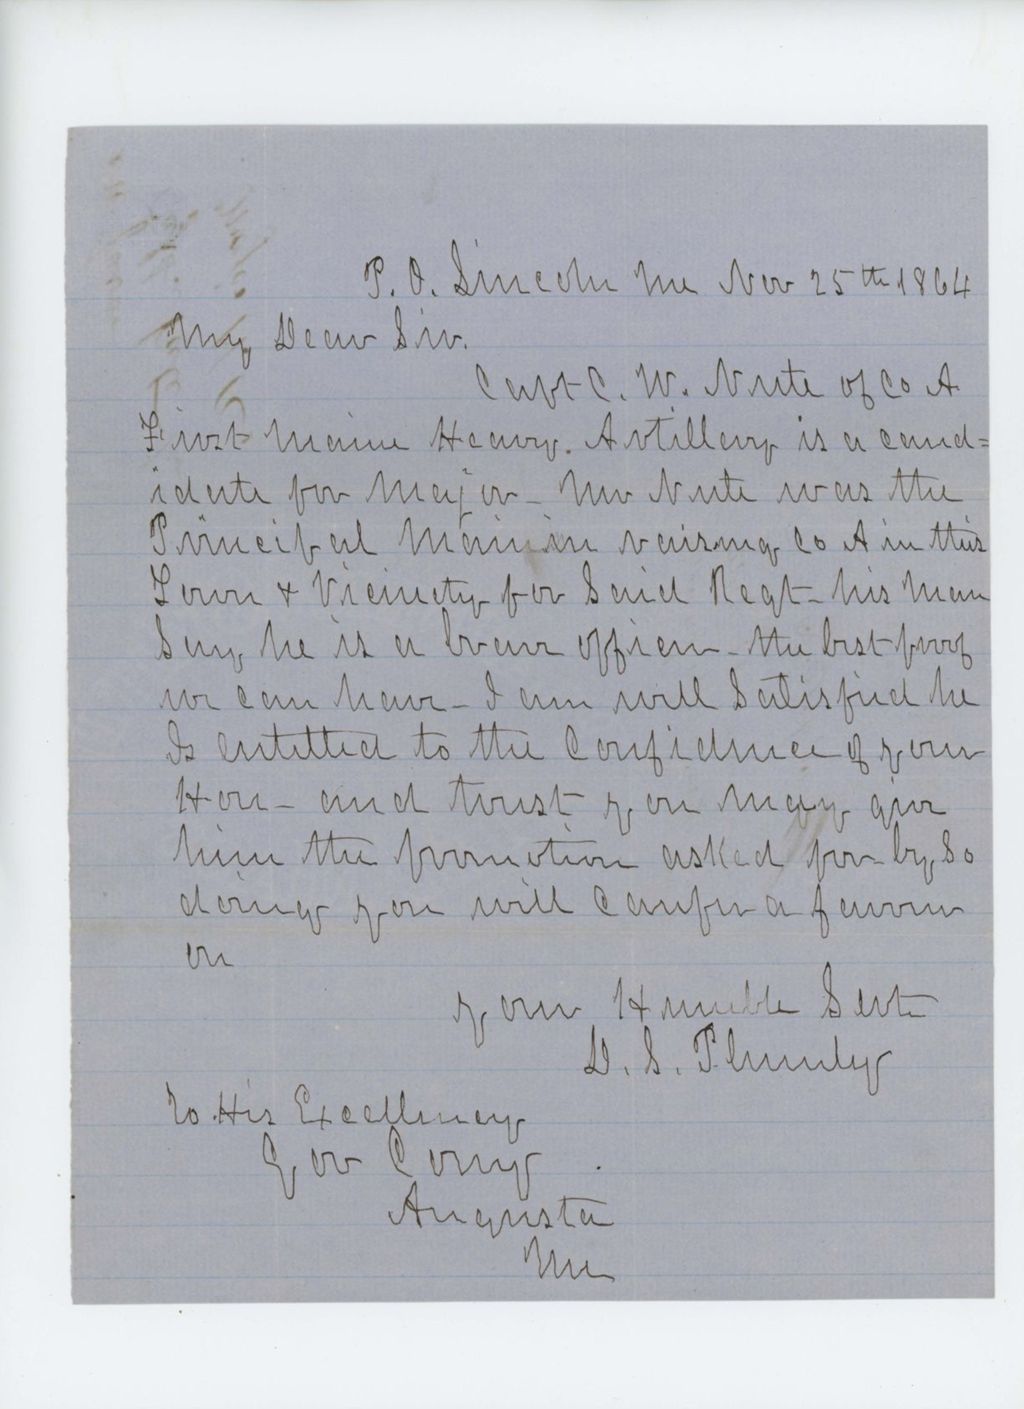 P. O. Lincoln Me Nov 25th 1864
My Dear Sir.
Capt C. W. Nute of Co A
First Maine Heavy Artillery is a cand=
idate for Major - Mr Nute was the
Principal Man in raising Co A in this
Town & Vicinity for Said Regt - his Men
Say he is a brave officer - the best proof
we can have - I am well Satisfied he
Is entitled to the Confidence of your
Hon - and trust you may give
him the promotion asked for - by So
doing you will Confer a favour
on
your Humble Servt
D. S. Plumly
To His Excellency
Gov Cony
Augusta
Me